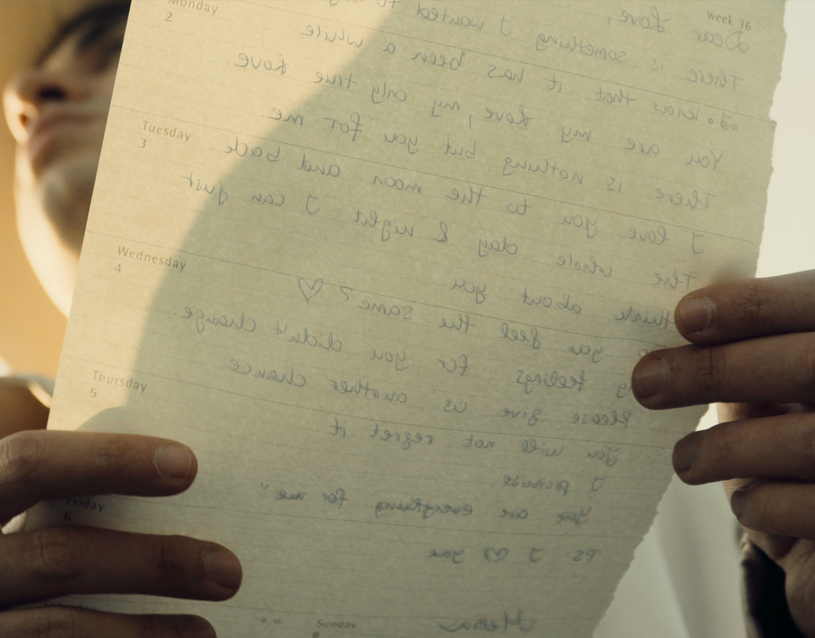 week 36
Monday
2
Tuesday
3
Wednesday
4
Thursday
5
Friday
6
Sunday
8
Dear Love,
There is something I wanted
to know that it has been a while
You are my love, my only true Love.
There is nothing but you for me
I love you to the moon and back.
The whole day & night I can just
think about you
you feel the same? ♡
feelings for you didn't change.
Please give us another chance
You will not regret it
I promise
You are everything for me"
PS I ♡ you